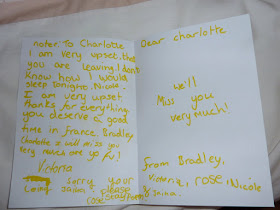 note: To Charlotte
I am very upset that
you are leaving I don't
know how I would
sleep tonight, Nicole.
I am very upset
thanks for everything
you deserve a good
time in france. Bradley
Charlotte I will miss you
very much love you
Victoria
sorry your
leaving please
stay
rose
Dear charlotte
we'll
Miss you
very much!
from Bradley,
Victoria, rose, Nicole
&